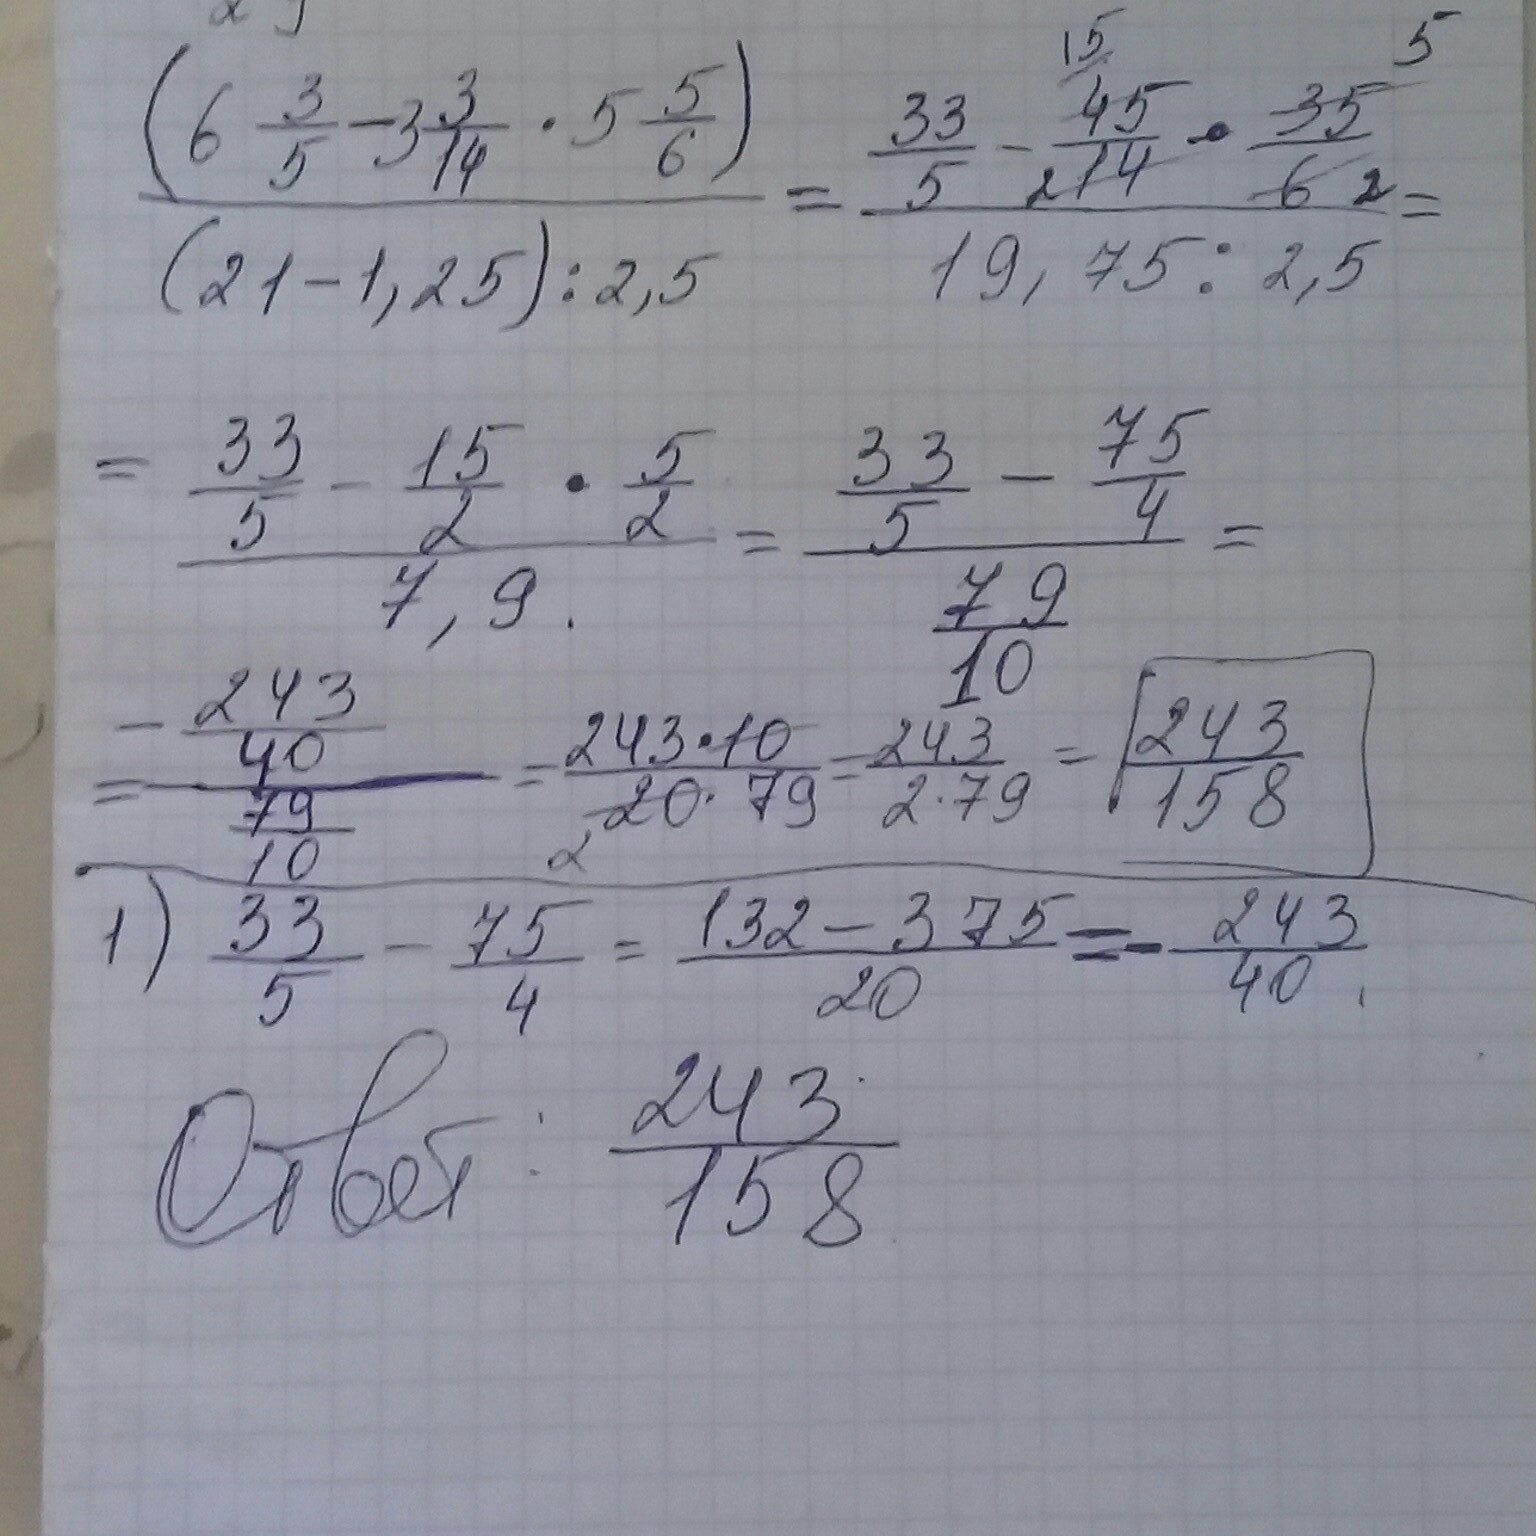 (6 3/5 - 3 3/14 · 5 5/6) / ((21 - 1,25) : 2,5) = (33/5 - 45/14 · 35/6) / (19,75 : 2,5) =
15 5
2 2
= (33/5 - 15/2 · 5/2) / 7,9. = (33/5 - 75/4) / (79/10) =
= (-243/40) / (79/10) = 243·10 / 20·79 = 243 / 2·79 = 243/158
2
1) 33/5 - 75/4 = (132 - 375)/20 = - 243/40.
Ответ: 243/158